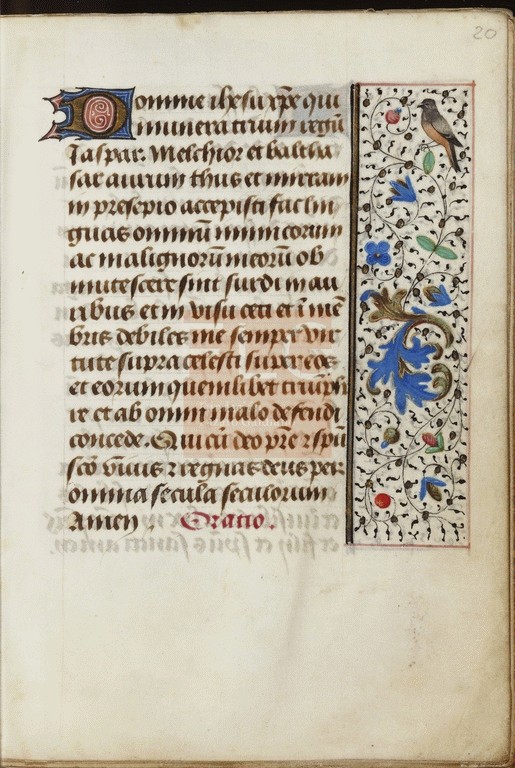 20
Domine ihesu xpe qui
munera trium regū
Jaspar. Melchior et baltha
sar aurum thus et mirram
in presepio accepisti fac lin
guas omniū inimicorum
ac malignorū meorū ob
mutescere sint surdi in au
ribus et in visu ceci et ī mē
bris debiles me semper vir
tute supra celesti super eos
et eorum quemlibet triūpha
re et ab omni malo defendi
concede. Qui cū deo pr̄e ⁊ spū
scō viuis ⁊ regnas deus per
omnia secula seculorum
Amen. Oratio.